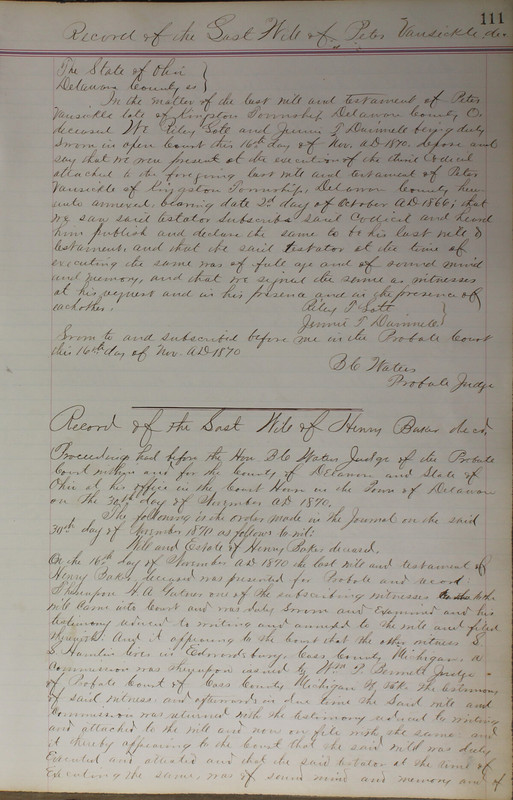 111
Record of the Last Will of Peter Vansickle dec
The State of Ohio }
Delaware County ss }
In the matter of the last will and testament of Peter
Vansickle late of Kingston Township Delaware County O.
deceased We Riley T Lott and Jennie T Dunnell being duly
Sworn in open Court this 16th day of Nov. AD 1870. depose and
say that we were present at the execution of the Codicil
attached to the foregoing last will and testament of Peter
Vansickle of Kingston Township Delaware County here
unto annexed, bearing date 2d day of October AD 1866; that
we saw said testator subscribe said Codicil and heard
him publish and declare the same to be his last will &
testament. and that the said testator at the time of
executing the same was of full age and of sound mind
and memory, and that we signed the same as witnesses
at his request and in his presence and in the presence of
eachother.
Riley T Lott }
Jennie T Dunnell }
Sworn to and subscribed before me in the Probate Court
this 16th day of Nov. AD 1870
B C Waters
Probate Judge
Record of the Last Will of Henry Baker decd,
Proceedings had before the Hon B C Waters Judge of the Probate
Court within and for the County of Delaware and State of
Ohio at his office in the Court House in the Town of Delaware
on the 30th day of November AD 1870.
The following is the orders made in the Journal on the said
30th day of November 1870 as follows to wit:
Will and Estate of Henry Baker deceased.
On the 16th day of November AD 1870 the last will and testament of
Henry Baker deceased was presented for Probate and record.
Thereupon H. A. one of the subscribing witnesses to the
will Came into Court and was duly Sworn and Examined and his
testimony reduced to writing and annexed to the will and filed
therewith. And it appearing to the Court that the other witness S
S Hamlin lives in Edwardsburg Cass County Michigan. a
Commission was thereupon issued to Wm P. Bennett Judge
of Probate Court of Cass County Michigan to take the testimony
of said witness. and afterwards in due time the said will and
Commission was returned with the testimony reduced to writing
and attached to the will and now on file with the same. and
it thereby appearing to the Court that the said will was duly
Executed and attested and that the said testator at the time of
Executing the same, was of sound mind and memory and of